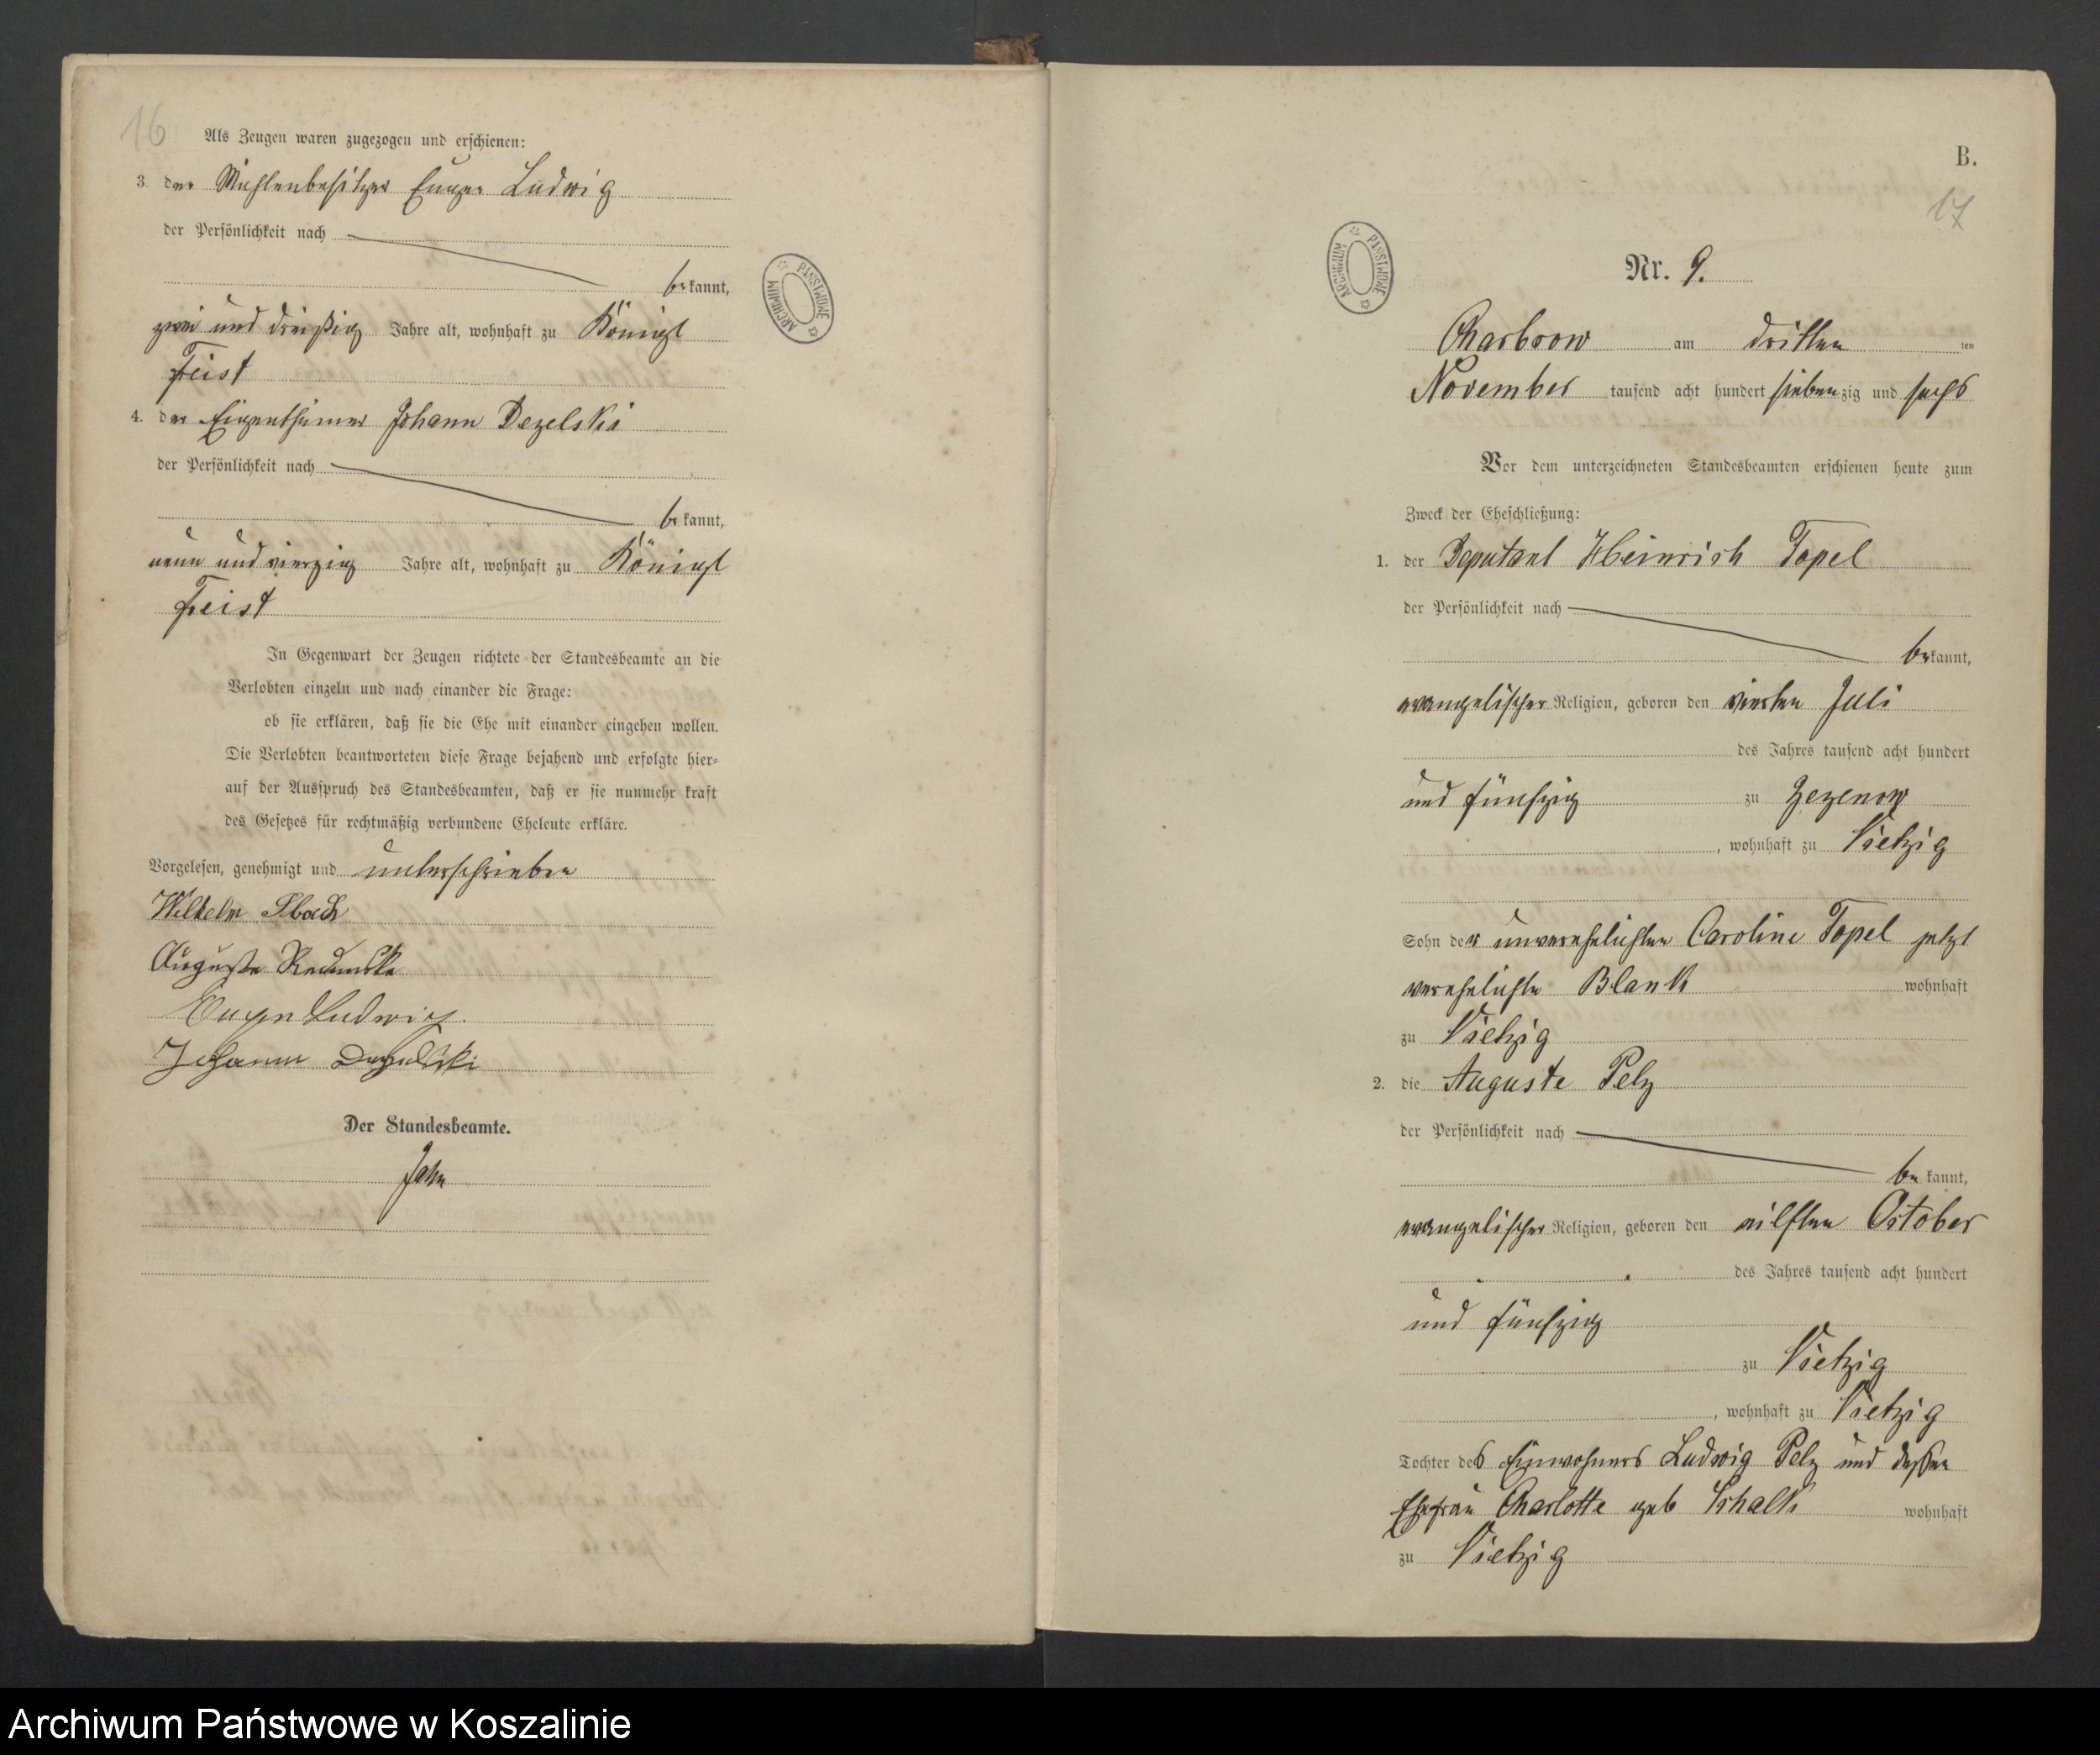 16
Als Zeugen waren zugezogen und erschienen:
3. der Mühlenbesitzer Eugen Ludwig
der Persönlichkeit nach
bekannt,
zwei und dreißig Jahre alt, wohnhaft zu Königl
Freist
4. der Eigenthümer Johann Dezelski
der Persönlichkeit nach
bekannt,
neun und vierzig Jahre alt, wohnhaft zu Königl
Freist
In Gegenwart der Zeugen richtete der Standesbeamte an die
Verlobten einzeln und nach einander die Frage:
ob sie erklären, daß sie die Ehe mit einander eingehen wollen.
Die Verlobten beantworteten diese Frage bejahend und erfolgte hier-
auf der Ausspruch des Standesbeamten, daß er sie nunmehr kraft
des Gesetzes für rechtmäßig verbundene Eheleute erkläre.
Vorgelesen, genehmigt und unterschrieben
Wilhelm
Auguste
Eugen Ludwig.
Johann Dezelski
Der Standesbeamte.
Jahn
ARCHIWUM PAŃSTWOWE
B.
17
ARCHIWUM PAŃSTWOWE
Nr. 9.
Charbrow am dritten ten
November tausend acht hundert siebenzig und sechs
Vor dem unterzeichneten Standesbeamten erschienen heute zum
Zweck der Eheschließung:
1. der Deputant Heinrich Topel
der Persönlichkeit nach
bekannt,
evangelischer Religion, geboren den vierten Juli
des Jahres tausend acht hundert
und fünfzig zu Zezenow
, wohnhaft zu Vietzig
Sohn der unverehelichten Caroline Topel jetzt
verehelichte Blank wohnhaft
zu Vietzig
2. die Auguste Pelz
der Persönlichkeit nach
bekannt,
evangelischer Religion, geboren den eilften October
des Jahres tausend acht hundert
und fünfzig
zu Vietzig
, wohnhaft zu Vietzig
Tochter des Einwohners Ludwig Pelz und dessen
Ehefrau Charlotte geb Schalk wohnhaft
zu Vietzig
Archiwum Państwowe w Koszalinie